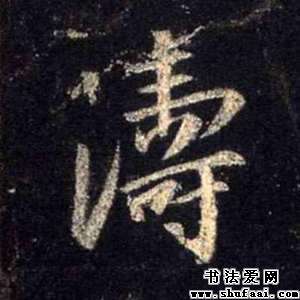 濤
书法爱网
www.shufaai.com